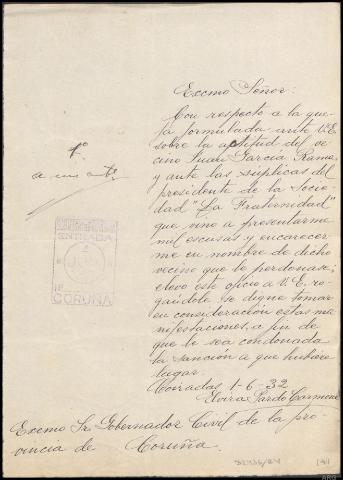 Excmo Señor:
Con respecto a la que-
ja formulada ante V.E.
sobre la actitud del ve-
cino Juan García Rama,
y ante las súplicas del
presidente de la Socie-
dad "La Fraternidad"
que vino a presentarme
mil escusas y encarecer-
me en nombre de dicho
vecino que le perdonase;
elevo este oficio a V.E. ro-
gándole se digne tomar
en consideración estas ma-
nifestaciones, a fin de
que le sea condonada
la sanción a que hubiere
lugar.
Coiradas 1-6-32
Elvira Pardo Carmena
Excmo Sr Gobernador Civil de la pro-
vincia de Coruña.
1º
ENTRADA
CORUÑA